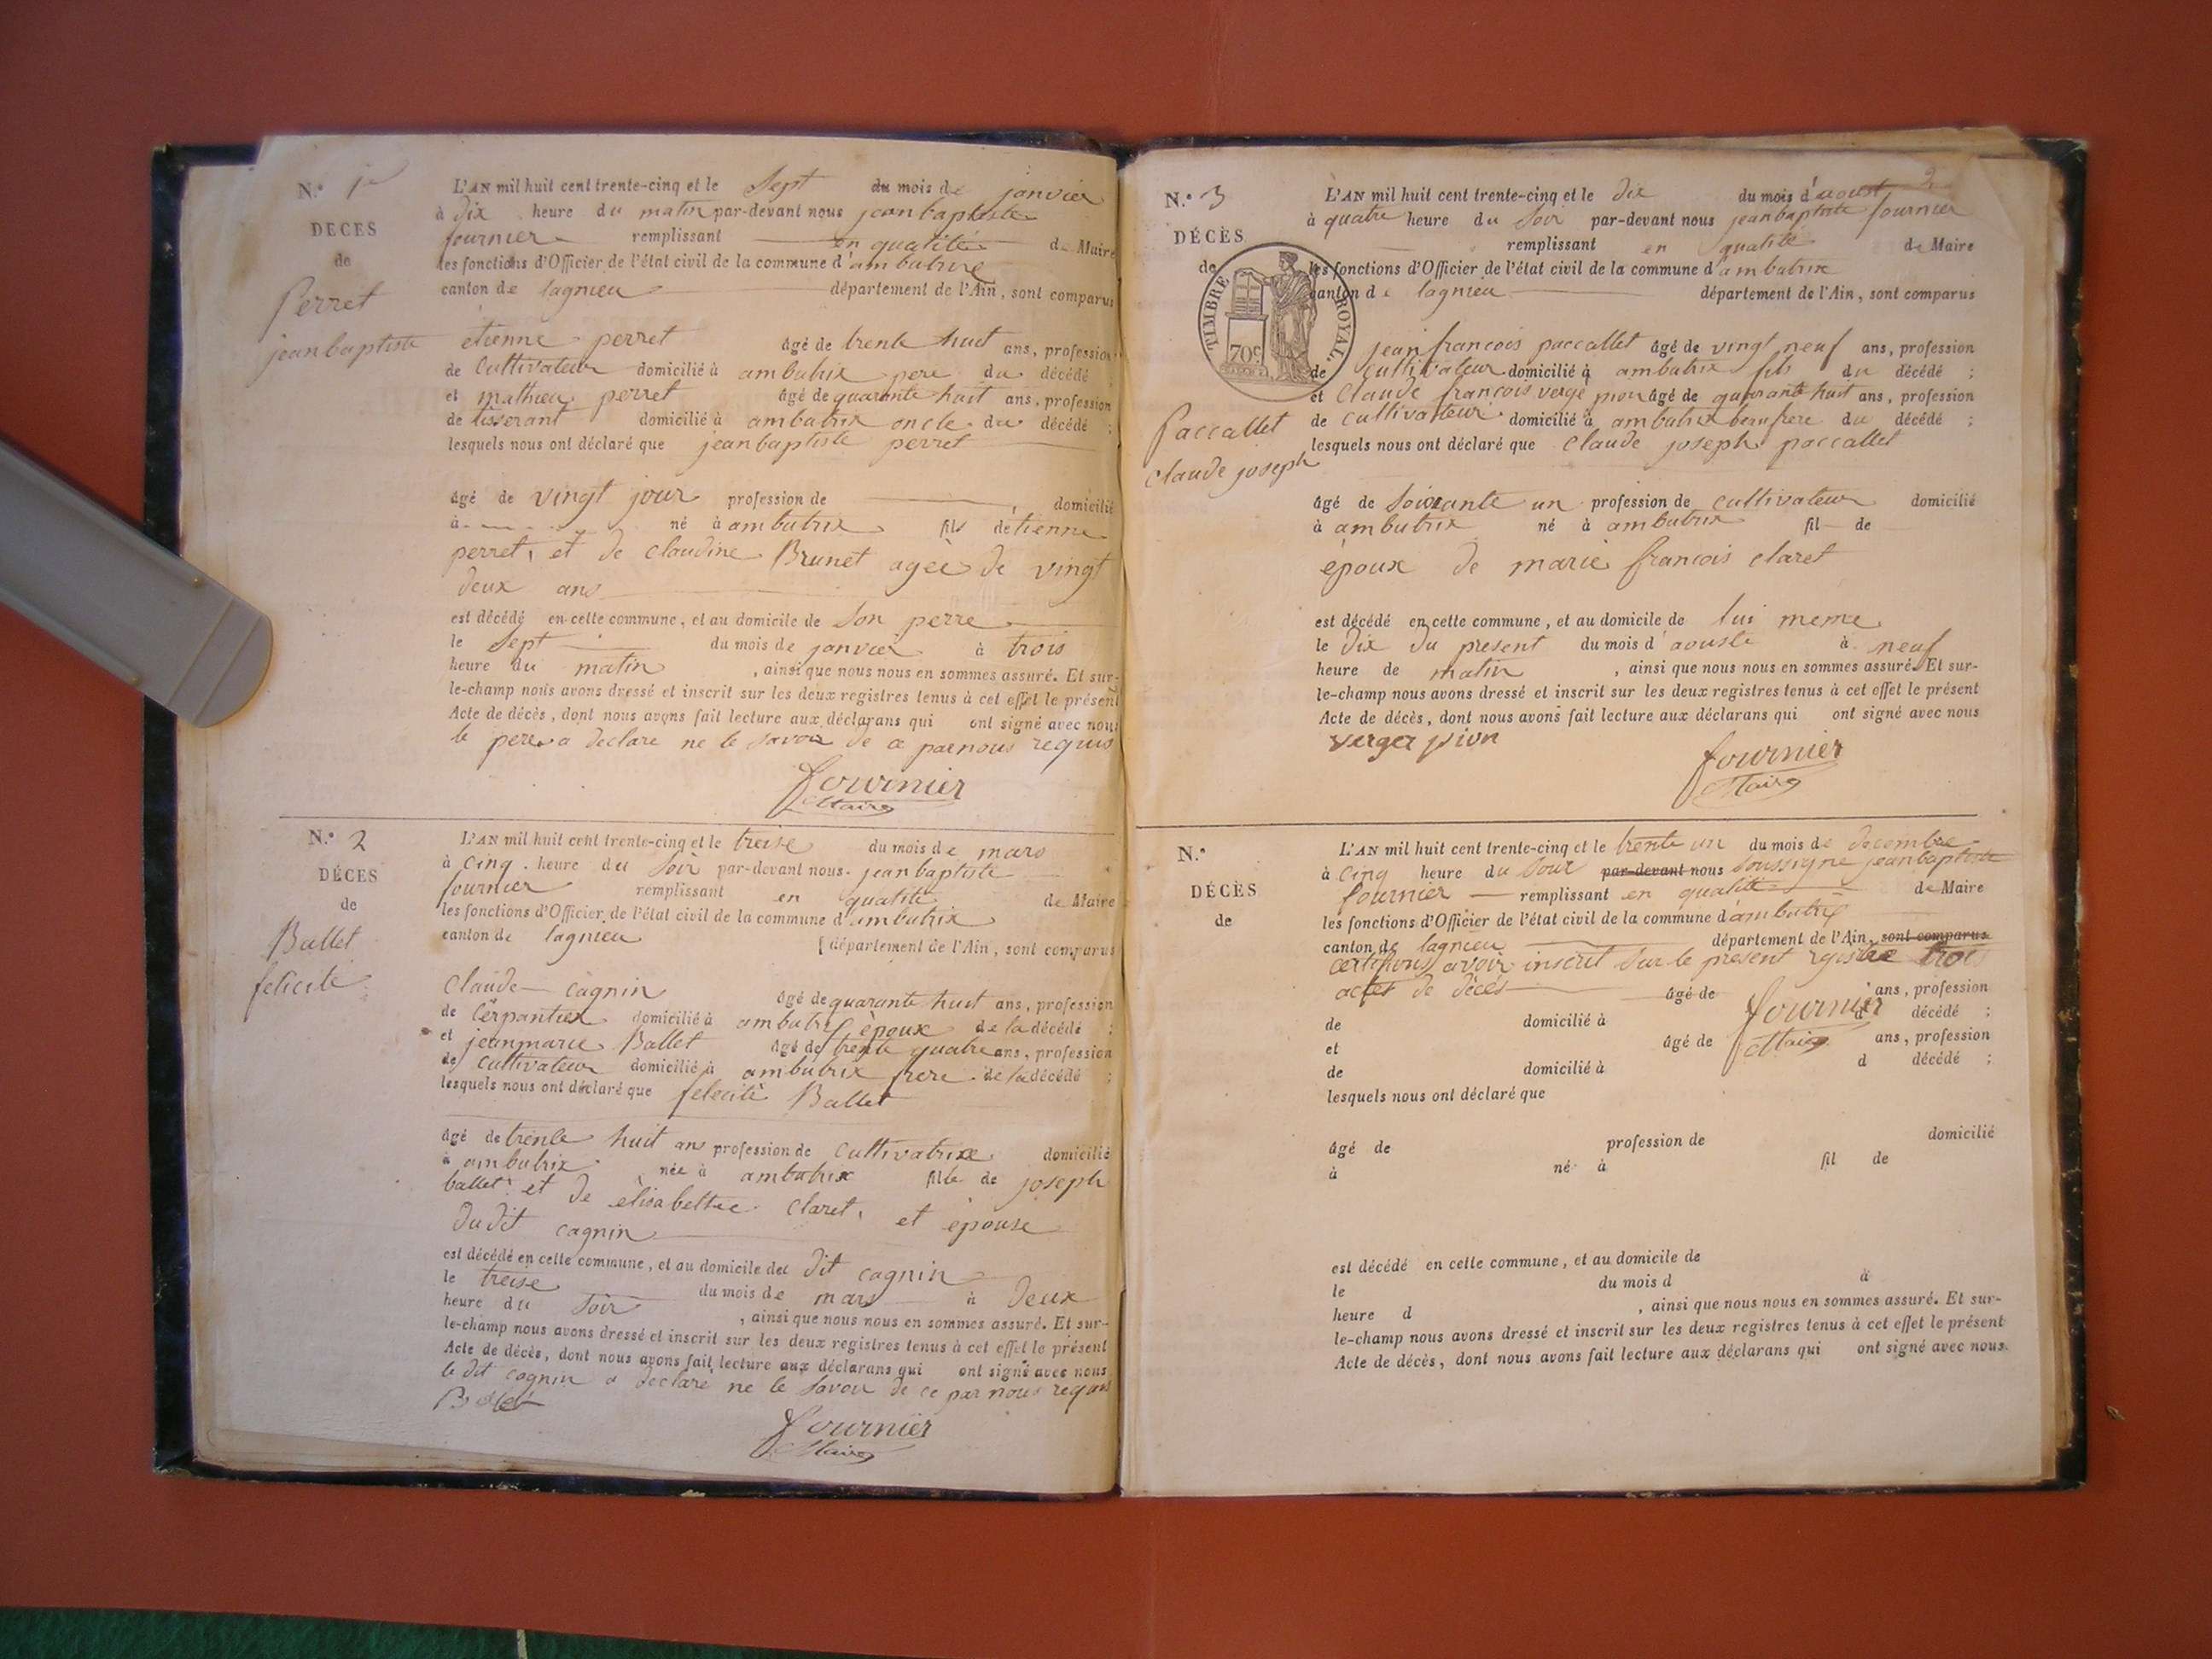 N.° 1er
DECES
de
Perret
jean baptiste
L'AN mil huit cent trente-cinq et le Sept du mois de janvier
à dix heure du matin par-devant nous jean baptiste
fournier remplissant en qualité de Maire
les fonctions d'Officier de l'état civil de la commune d'ambutrix
canton de lagnieu département de l'Ain, sont comparus
etienne perret âgé de trente huit ans, profession
de Cultivateur domicilié à ambutrix pere du décédé ;
et mathieu perret âgé de quarante huit ans, profession
de tisserant domicilié à ambutrix oncle du décédé ;
lesquels nous ont déclaré que jean baptiste perret
âgé de vingt jour profession de , domicilié
à né à ambutrix fils détienne
perret, et de claudine Brunet agèe de vingt
deux ans
est décédé en cette commune, et au domicile de Son perre
le Sept du mois de janvier à trois
heure du matin , ainsi que nous nous en sommes assuré. Et sur-
le-champ nous avons dressé et inscrit sur les deux registres tenus à cet effet le présent
Acte de décès, dont nous avons fait lecture aux déclarans qui ont signé avec nous
le pere a declare ne le savoir de ce par nous requis
fournier
Maire
N.° 2
DÉCES
de
Ballet
felicité
L'AN mil huit cent trente-cinq et le treise du mois de mars
à Cinq heure du Soir par-devant nous jean baptiste
fournier remplissant en qualité de Maire
les fonctions d'Officier de l'état civil de la commune d'ambutrix
canton de lagnieu département de l'Ain, sont comparus
Claude cagnin âgé de quarante huit ans, profession
de Cerpantier domicilié à ambutrix èpoux de la décédé ;
et jeanmarie Ballet âgé de trente quatre ans, profession
de cultivateur domicilié à ambutrix frere de la décédé ;
lesquels nous ont déclaré que felecité Ballet
âgé de trente huit ans profession de cultivatrixe domicilié
à ambutrix née à ambutrix fille de joseph
ballet et de èlisabettee Claret, et èpouse
du dit cagnin
est décédé en cette commune, et au domicile du dit cagnin
le treise du mois de mars à Deux
heure du Soir , ainsi que nous nous en sommes assuré. Et sur-
le-champ nous avons dressé et inscrit sur les deux registres tenus à cet effet le présent
Acte de décès, dont nous avons fait lecture aux déclarans qui ont signé avec nous
le dit cagnin a declaré ne le savoir de ce par nous requis
Ballet
fournier
Maire
2
N.° 3
DÉCÈS
de
TIMBRE ROYAL.
70c
Paccallet
claude joseph
L'AN mil huit cent trente-cinq et le dix du mois d'aoust
à quatre heure du Soir par-devant nous jean baptiste fournier
remplissant en qualité de Maire
les fonctions d'Officier de l'état civil de la commune d'ambutrix
canton de lagnieu département de l'Ain, sont comparus
jean francois paccallet âgé de vingt neuf ans, profession
de Cultivateur domicilié à ambutrix fils du décédé ;
et Claude francois vergé pion âgé de quarante huit ans, profession
de cultivateur domicilié à ambutrix beau frere du décédé ;
lesquels nous ont déclaré que Claude joseph paccallet
âgé de Soixante un profession de cultivateur domicilié
à ambutrix né à ambutrix fil de
èpoux de marie francois claret
est décédé en cette commune, et au domicile de lui meme
le Dix du present du mois d'aouste à neuf
heure de matin , ainsi que nous nous en sommes assuré. Et sur-
le-champ nous avons dressé et inscrit sur les deux registres tenus à cet effet le présent
Acte de décès, dont nous avons fait lecture aux déclarans qui ont signé avec nous
verger pion
fournier
Maire
N.°
DÉCÈS
de
L'AN mil huit cent trente-cinq et le trente un du mois de decembre
à Cinq heure du Soir par-devant nous soussigné jean baptiste
fournier remplissant en qualité de Maire
les fonctions d'Officier de l'état civil de la commune d'ambutrix
canton de lagnieu département de l'Ain, sont comparus
certifions avoir inscrit sur le present registre trois
actes de décès âgé de ans, profession
de domicilié à d décédé ;
et âgé de ans, profession
de domicilié à d décédé ;
fournier
Maire
lesquels nous ont déclaré que
âgé de profession de domicilié
à né à fil de
est décédé en cette commune, et au domicile de
le du mois d à
heure d , ainsi que nous nous en sommes assuré. Et sur-
le-champ nous avons dressé et inscrit sur les deux registres tenus à cet effet le présent
Acte de décès, dont nous avons fait lecture aux déclarans qui ont signé avec nous.